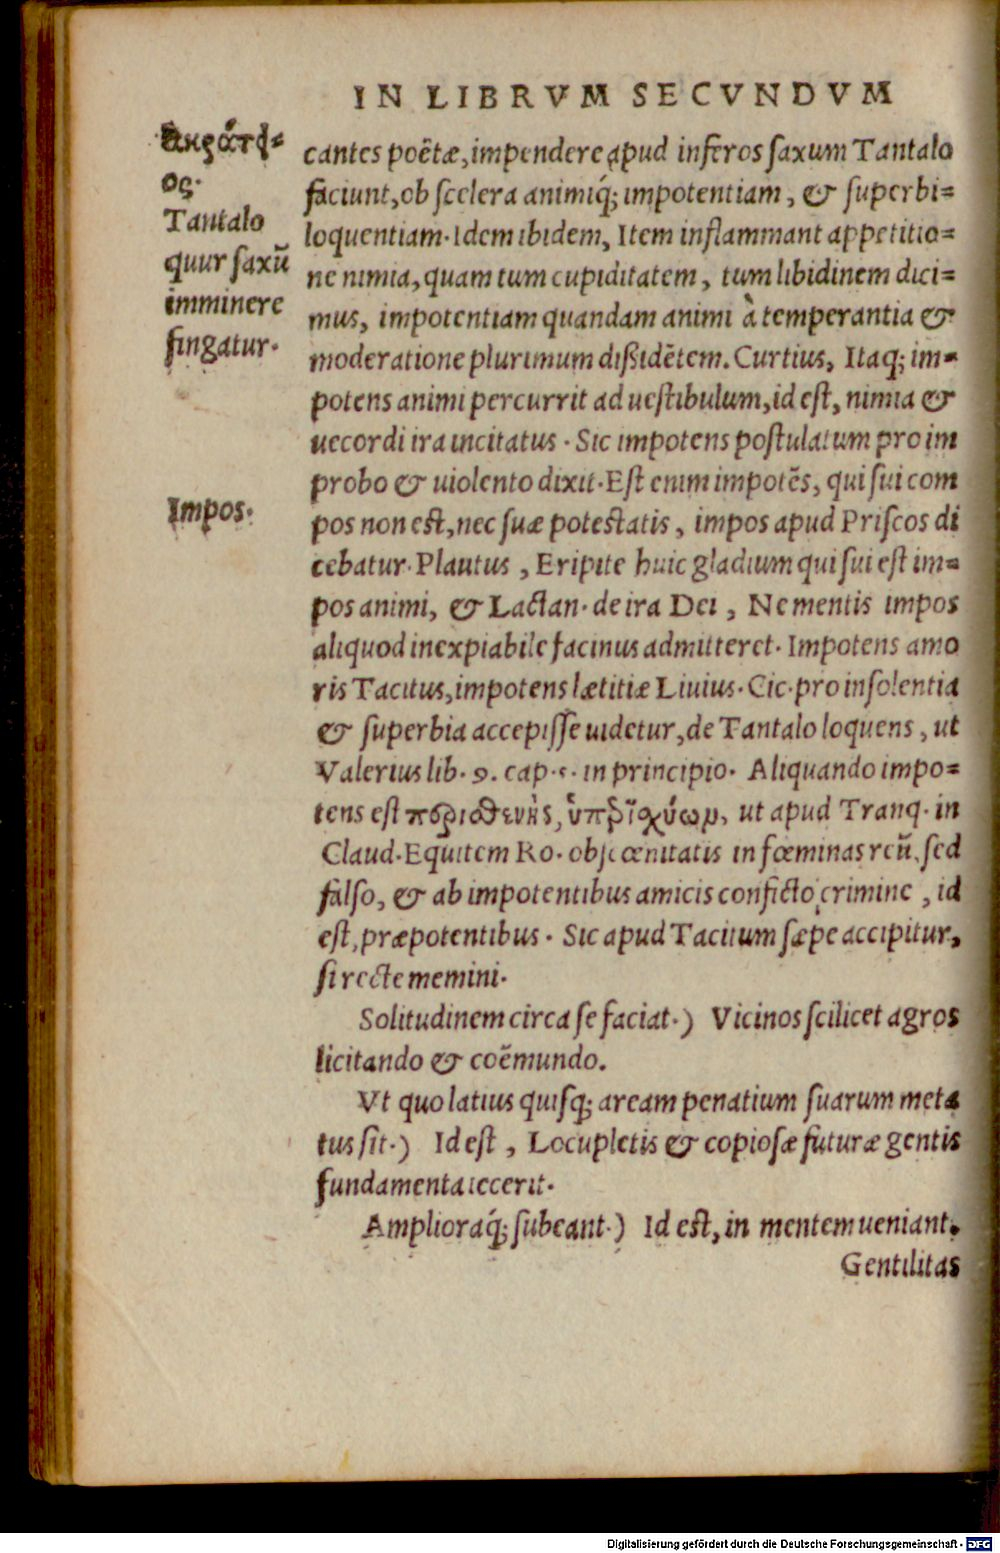 IN LIBRVM SECVNDVM
ος.
Tantalo
quur saxũ
imminere
fingatur.
Impos.
cantes poẽtæ, impendere apud inferos saxum Tantalo
faciunt, ob scelera animiq́; impotentiam, & superbi=
loquentiam. Idem ibidem, Item inflammant appetitio=
ne nimia, quam tum cupiditatem, tum libidinem dici=
mus, impotentiam quandam animi à temperantia &
moderatione plurimum dißidẽtem. Curtius, Itaq; im=
potens animi percurrit ad uestibulum, id est, nimia &
uecordi ira incitatus. Sic impotens postulatum pro im
probo & uiolento dixit. Est enim impotẽs, qui sui com
pos non est, nec suæ potestatis, impos apud Priscos di
cebatur. Plautus, Eripite huic gladium qui sui est im=
pos animi, & Lactan. de ira Dei, Ne mentis impos
aliquod inexpiabile facinus admitteret. Impotens amo
ris Tacitus, impotens lætitiæ Liuius. Cic. pro insolentia
& superbia accepisse uidetur, de Tantalo loquens, ut
Valerius lib. 9. cap. 5. in principio. Aliquando impo=
tens est περισθενὴς, ut apud Tranq. in
Claud. Equitem Ro. obscœnitatis in fœminas reũ, sed
falso, & ab impotentibus amicis conficto crimine, id
est, præpotentibus. Sic apud Tacitum sæpe accipitur,
si recte memini.
Solitudinem circa se faciat.) Vicinos scilicet agros
licitando & coẽmundo.
Vt quo latius quisq; aream penatium suarum meta
tus sit.) Id est, Locupletis & copiosæ futuræ gentis
fundamenta iecerit.
Ampliora q́; subeant.) Id est, in mentem ueniant.
Gentilitas
Digitalisierung gefördert durch die Deutsche Forschungsgemeinschaft - DFG